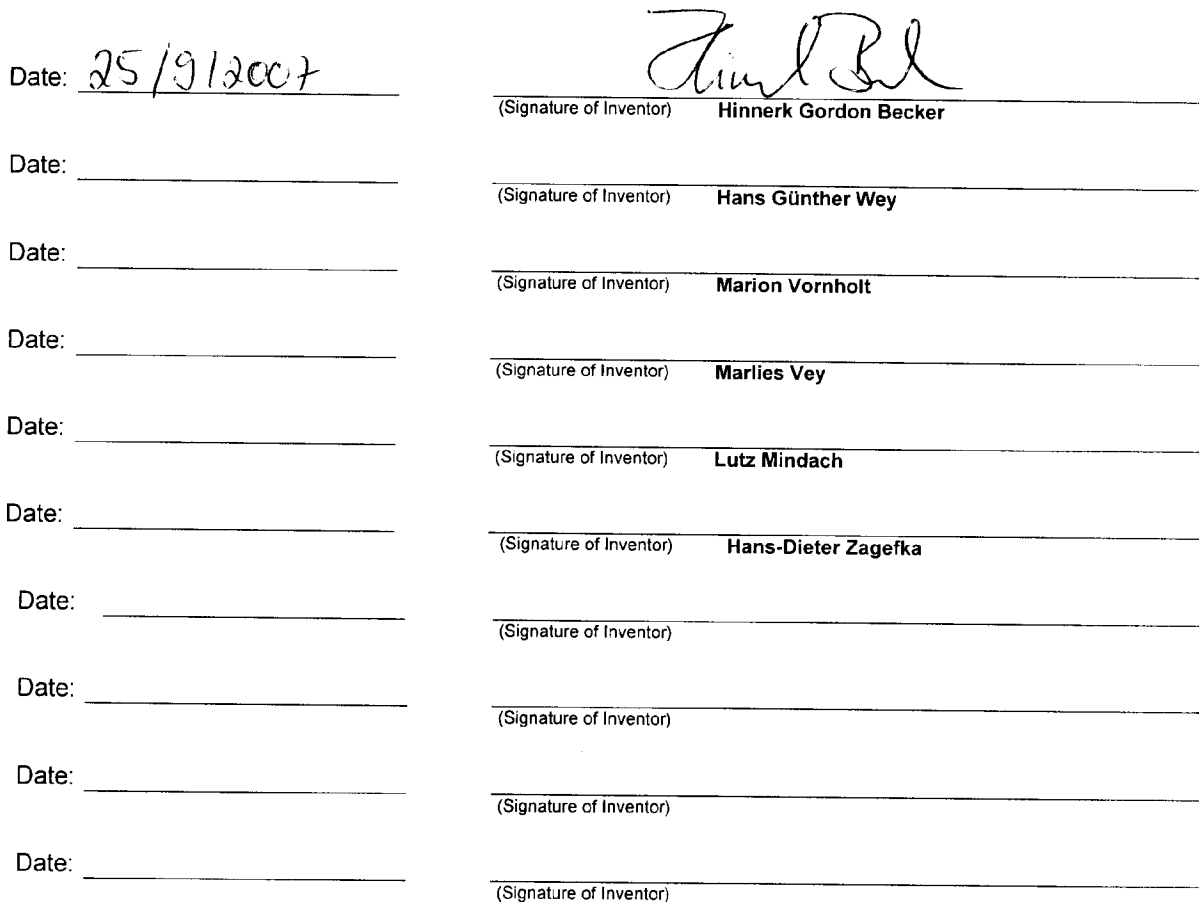 Date: 25/9/2007
(Signature of Inventor) Hinnerk Gordon Becker
Date:
(Signature of Inventor) Hans Günther Wey
Date:
(Signature of Inventor) Marion Vornholt
Date:
(Signature of Inventor) Marlies Vey
Date:
(Signature of Inventor) Lutz Mindach
Date:
(Signature of Inventor) Hans-Dieter Zagefka
Date:
(Signature of Inventor)
Date:
(Signature of Inventor)
Date:
(Signature of Inventor)
Date:
(Signature of Inventor)